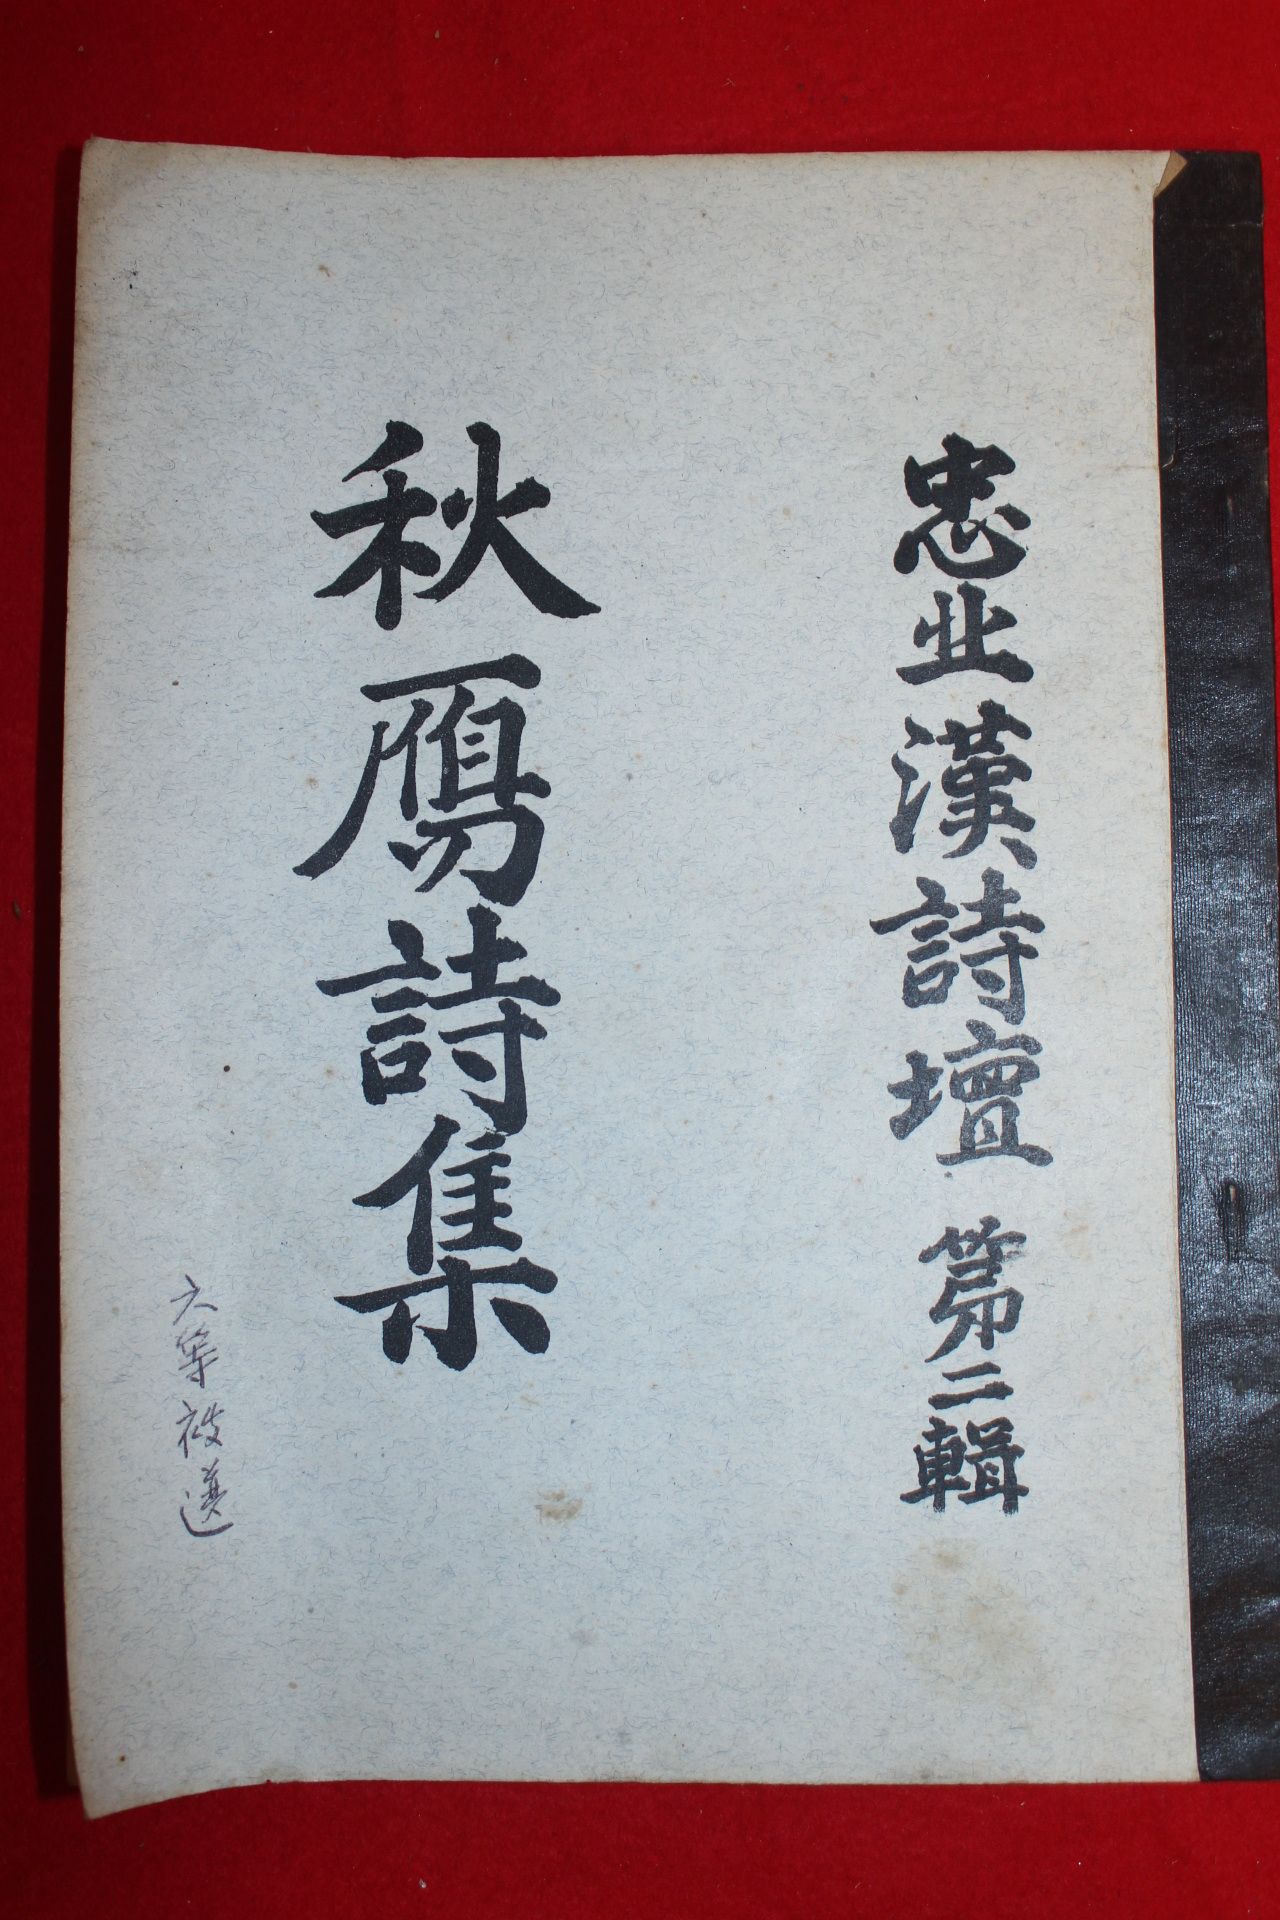 忠北漢詩壇 第二輯
秋鴈詩集
六等被選